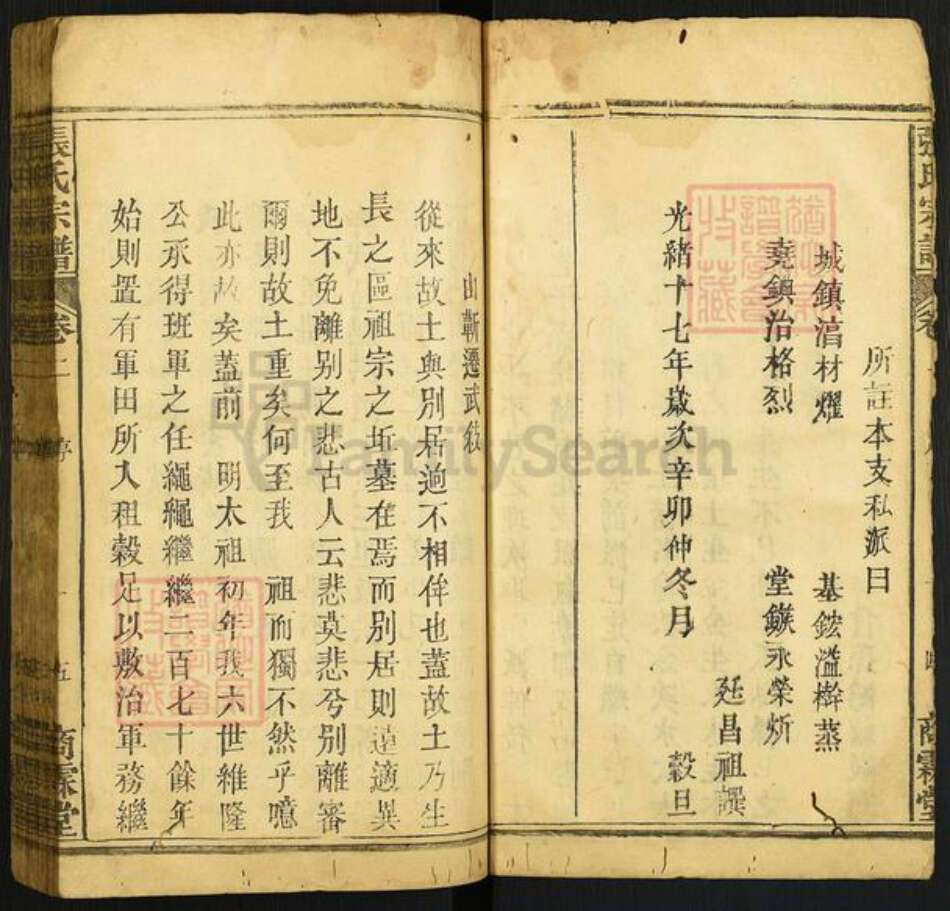 所註本支私派曰
城鎮湻材燿 基鋐溢榦蒸
堯鎮治格烈 堂鏃永榮炘
延昌祖譔
光緒十七年歲次辛卯仲冬月 穀旦
由蘄遷武敍
從來故土與別居逈不相侔也蓋故土乃生
長之區祖宗之坵墓在焉而別居則遠適異
地不免離別之悲古人云悲莫悲兮別離審
爾則故土重矣何至我 祖而獨不然乎噫
此亦故矣蓋前 明太祖初年我六世維隆
公承得班軍之任繩繩繼繼二百七十餘年
始則置有軍田所入租穀足以敷治軍務繼
張氏宗譜 卷 序 五 商霖堂
FamilySearch